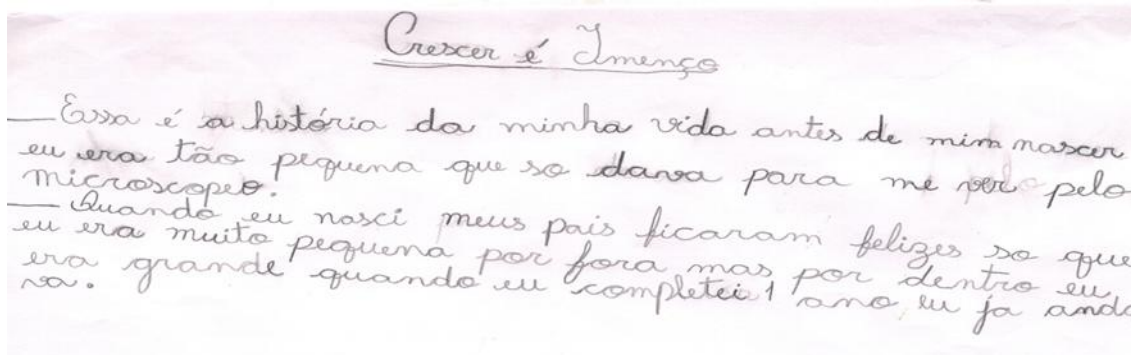 Crescer é Imenço
Essa é a história da minha vida antes de mim nascer
eu era tão pequena que so dava para me ver pelo
microscopeo.
Quando eu nasci meus pais ficaram felizes so que
eu era muito pequena por fora mas por dentro eu
era grande quando eu completei 1 ano eu ja anda
va.